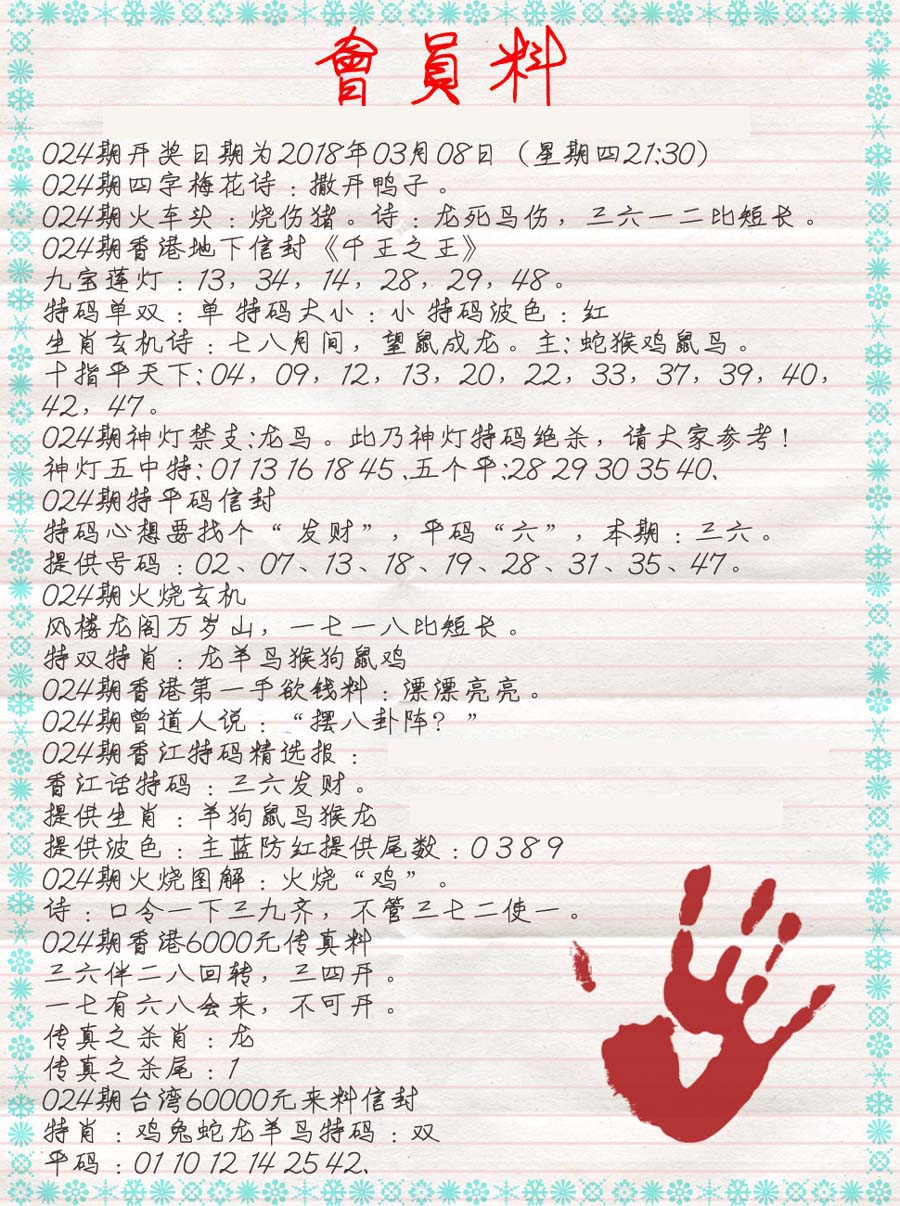 會員料
024期开奖日期为2018年03月08日（星期四21:30）
024期四字梅花诗：撒开鸭子。
024期火车头：烧伤猪。诗：龙死马伤，三六一二比短长。
024期香港地下信封《千王之王》
九宝莲灯：13，34，14，28，29，48。
特码单双：单 特码大小：小 特码波色：红
生肖玄机诗：七八月间，望鼠成龙。主:蛇猴鸡鼠马。
十指平天下:04，09，12，13，20，22，33，37，39，40，
42，47。
024期神灯禁支:龙马。此乃神灯特码绝杀，请大家参考！
神灯五中特:01 13 16 18 45 .五个平:28 29 30 35 40.
024期特平码信封
特码心想要找个“发财”，平码“六”，本期：三六。
提供号码：02、07、13、18、19、28、31、35、47。
024期火烧玄机
风楼龙阁万岁山，一七一八比短长。
特双特肖：龙羊马猴狗鼠鸡
024期香港第一手欲钱料：漂漂亮亮。
024期曾道人说：“摆八卦阵？”
024期香江特码精选报：
香江话特码：三六发财。
提供生肖：羊狗鼠马猴龙
提供波色：主蓝防红提供尾数：0 3 8 9
024期火烧图解：火烧“鸡”。
诗：口令一下三九齐，不管三七二使一。
024期香港6000元传真料
三六伴二八回转，三四开。
一七有六八会来，不可开。
传真之杀肖：龙
传真之杀尾：1
024期台湾60000元来料信封
特肖：鸡兔蛇龙羊马特码：双
平码：01 10 12 14 25 42.